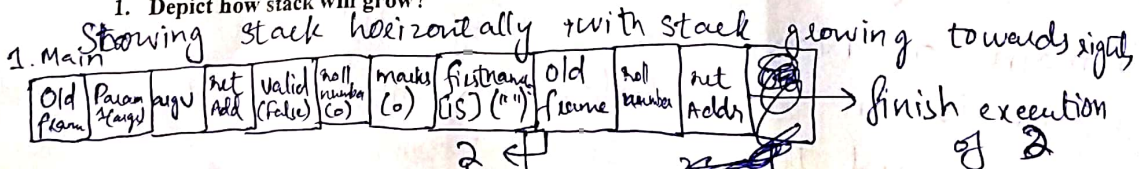 1. Depict how stack will grow?
Showing stack horizontally, with stack growing towards right
1. Main
Old frame
Param argv
ret Add
valid (false)
roll number (0)
marks (0)
firstname [15] ("")
Old frame
roll number
ret Addr
→ finish execution of 2
2